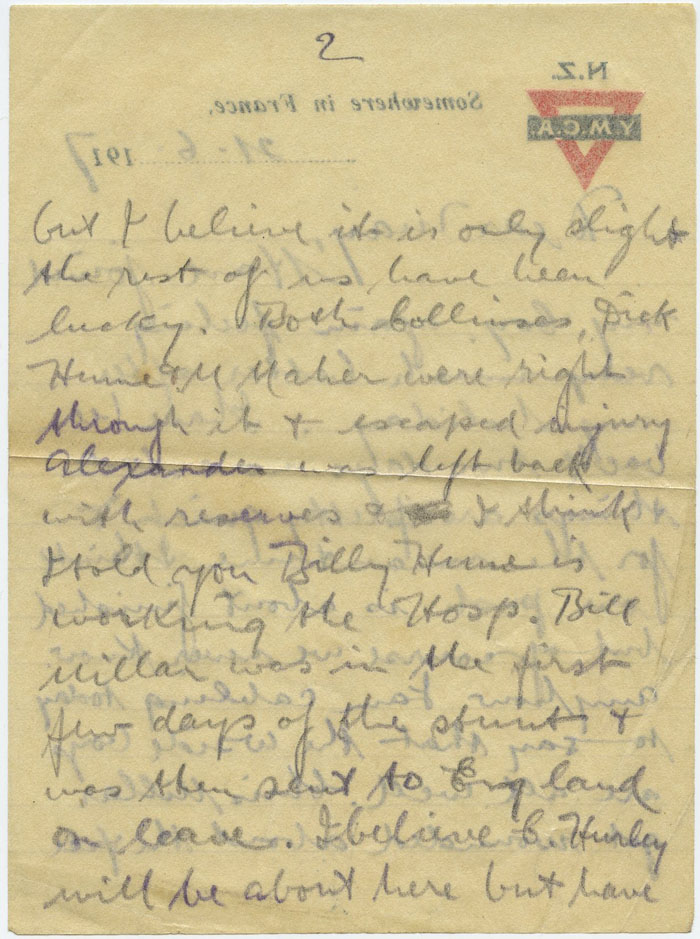 2
N.Z.
Y.M.C.A.
Somewhere in France,
21-6 1917
but I believe it is only slight
the rest of us have been
lucky. Both Collinses, Dick
Hume & M Maher were right
through it & escaped injury
Alexander was left back
with reserves & I think
I told you Billy Hume is
working the Hosp. Bill
Millar was in the first
few days of the stunt &
was then sent to England
on leave. I believe C. Hurley
will be about here but have